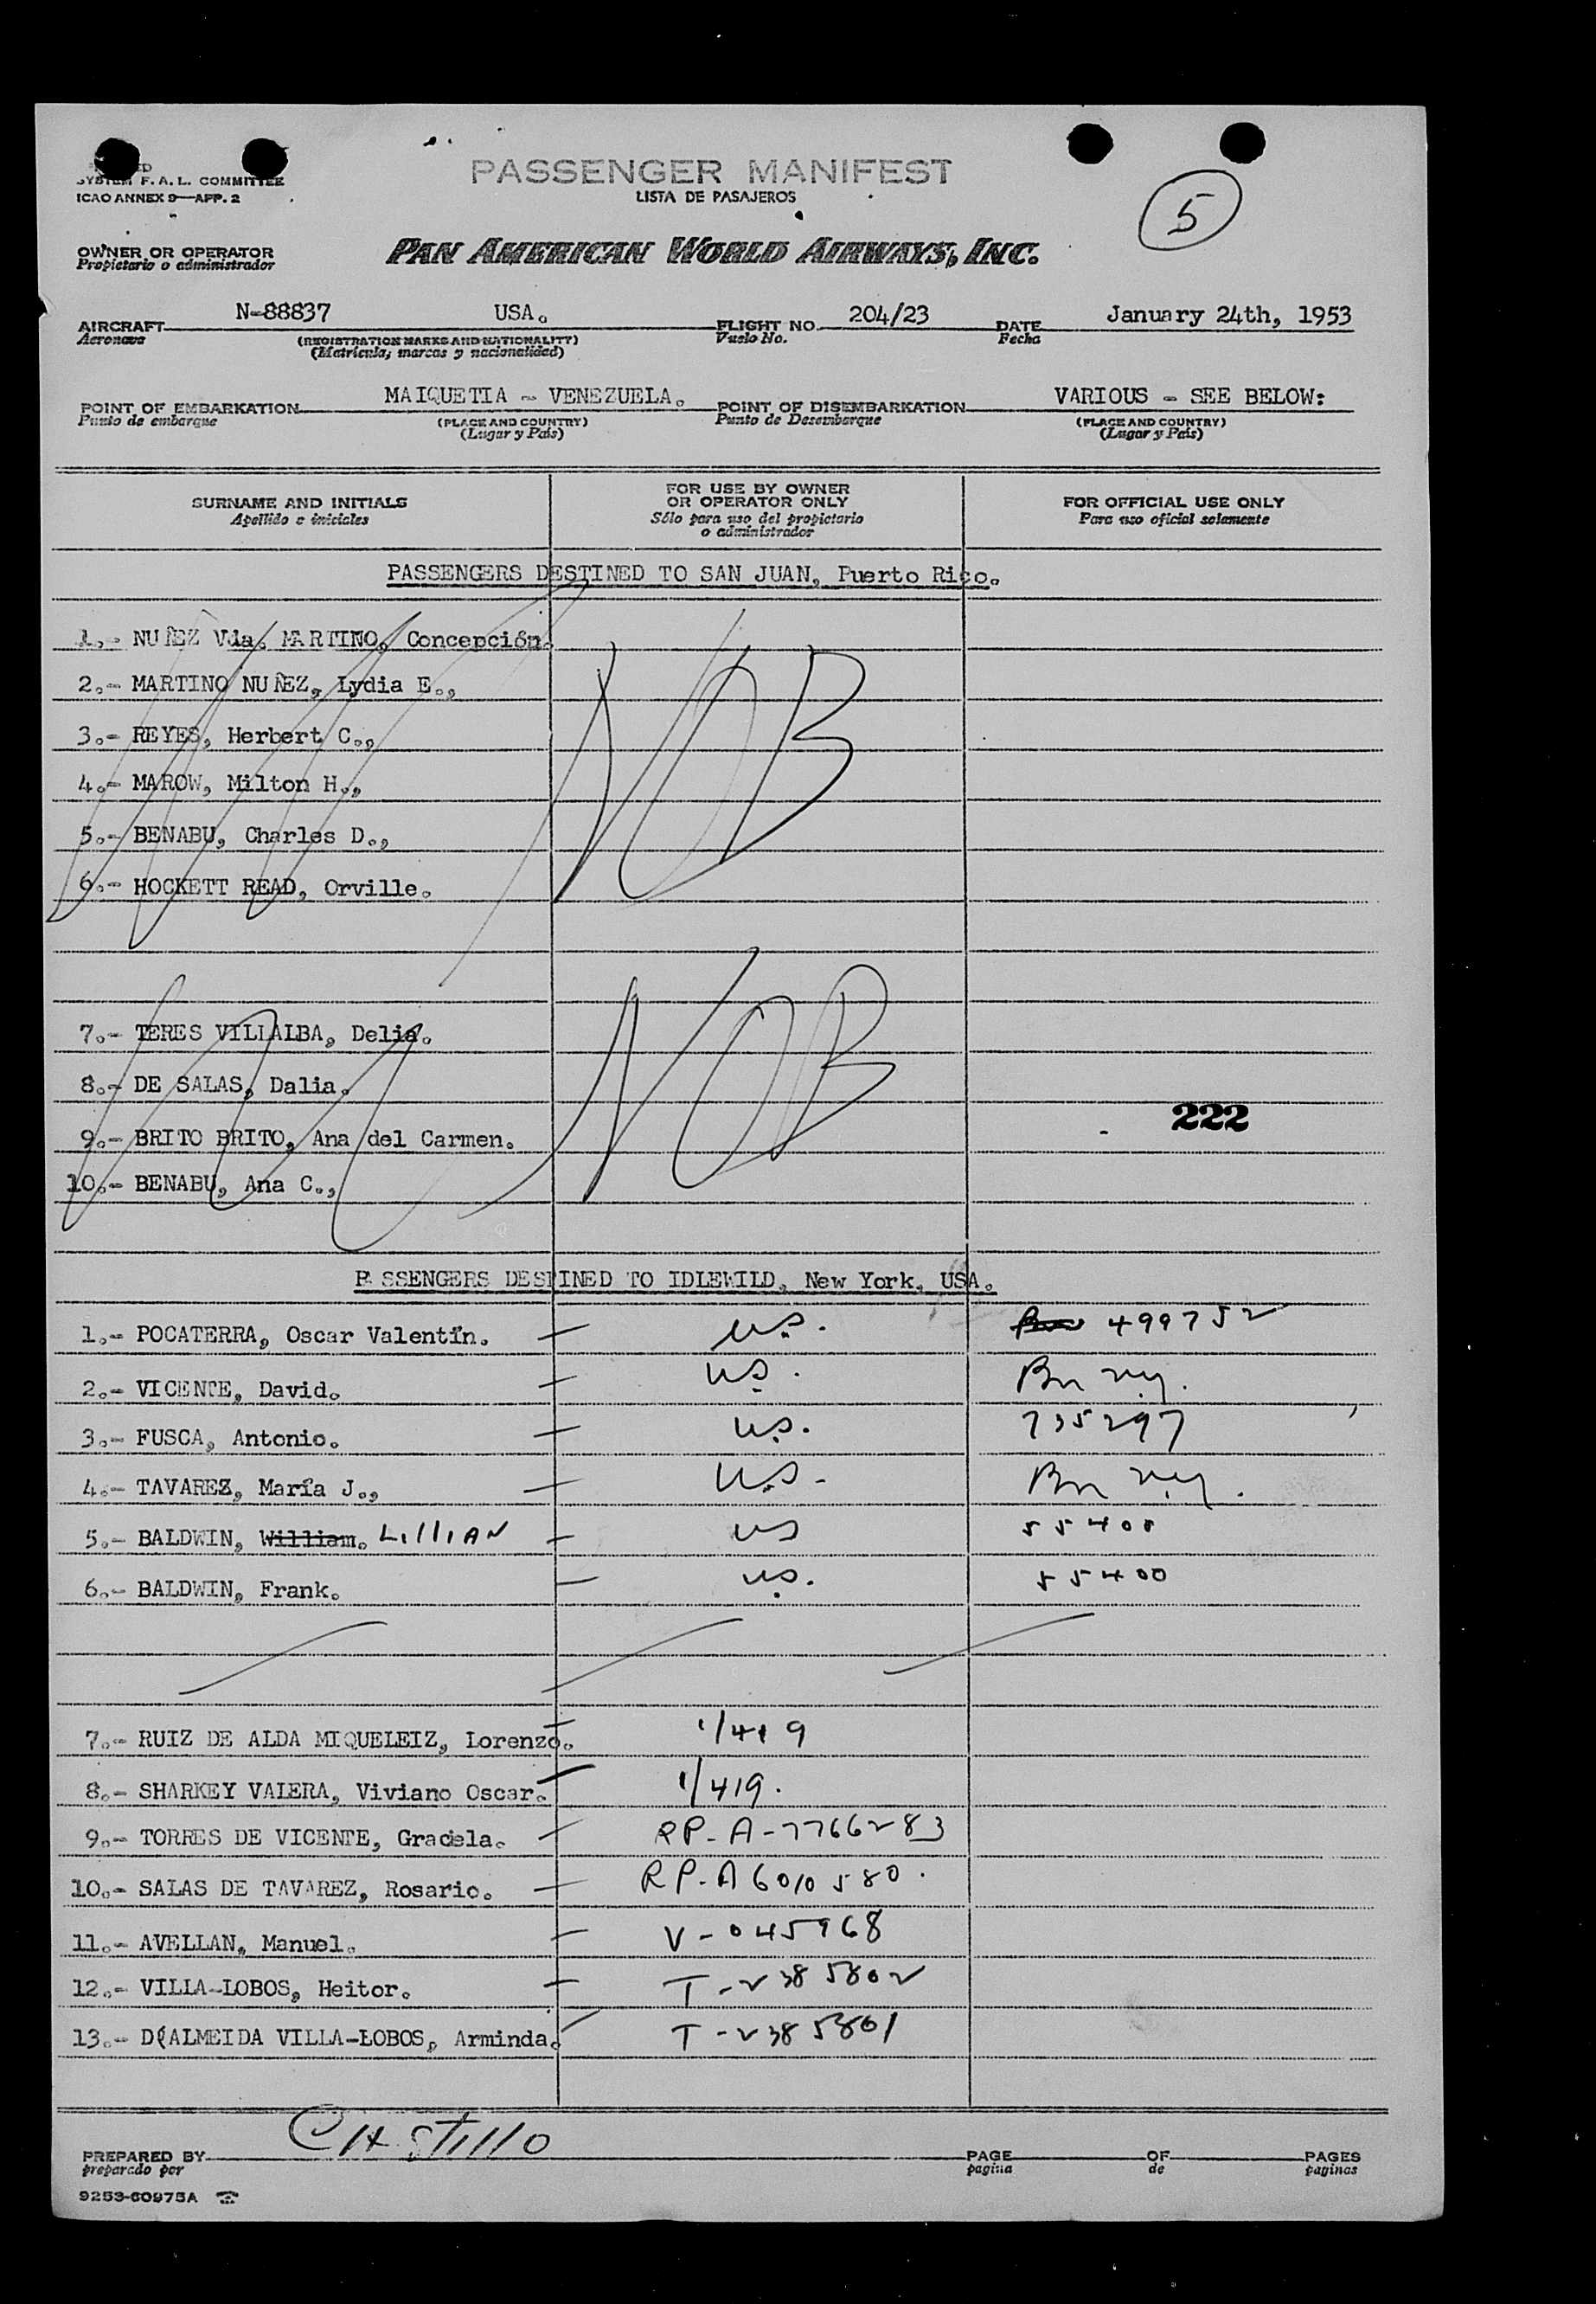 SYSTEM F. A. L. COMMITTEE
ICAO ANNEX 9—APP. 2
PASSENGER MANIFEST
LISTA DE PASAJEROS
5
OWNER OR OPERATOR
Propietario o administrador
PAN AMERICAN WORLD AIRWAYS, INC.
AIRCRAFT N-88837 USA. FLIGHT NO. 204/23 DATE January 24th, 1953
Aeronave (REGISTRATION MARKS AND NATIONALITY) Vuelo No. Fecha
(Matrícula, marcas y nacionalidad)
POINT OF EMBARKATION MAIQUETIA - VENEZUELA. POINT OF DISEMBARKATION VARIOUS - SEE BELOW:
Punto de embarque (PLACE AND COUNTRY) Punto de Desembarque (PLACE AND COUNTRY)
(Lugar y País) (Lugar y País)
SURNAME AND INITIALS
Apellido e iniciales
FOR USE BY OWNER
OR OPERATOR ONLY
Sólo para uso del propietario
o administrador
FOR OFFICIAL USE ONLY
Para uso oficial solamente
PASSENGERS DESTINED TO SAN JUAN, Puerto Rico.
1.- NUÑEZ Vda. MARTINO, Concepción.
2.- MARTINO NUÑEZ, Lydia E.,
3.- REYES, Herbert C.,
4.- MAROW, Milton H.,
5.- BENABU, Charles D.,
6.- HOCKETT READ, Orville.
NOB
7.- TERES VILLALBA, Delia.
8.- DE SALAS, Dalia.
9.- BRITO BRITO, Ana del Carmen.
10.- BENABU, Ana C.,
NOB
222
PASSENGERS DESTINED TO IDLEWILD, New York, USA.
1.- POCATERRA, Oscar Valentín. — U.S. 499752
2.- VICENTE, David. — U.S.
3.- FUSCA, Antonio. — U.S. 735297
4.- TAVAREZ, María J., — U.S.
5.- BALDWIN, William. LILLIAN — US 55400
6.- BALDWIN, Frank. — U.S. 55400
7.- RUIZ DE ALDA MIQUELEIZ, Lorenzo. 1/419
8.- SHARKEY VALERA, Viviano Oscar. 1/419.
9.- TORRES DE VICENTE, Graciela. — RP-A-7766283
10.- SALAS DE TAVAREZ, Rosario. — RP-A6010580.
11.- AVELLAN, Manuel. — V-045968
12.- VILLA-LOBOS, Heitor. — T-2385802
13.- D(ALMEIDA VILLA-LOBOS, Arminda. T-2385801
PREPARED BY CASTILLO PAGE OF PAGES
preparado por pagina de paginas
9253-60975A